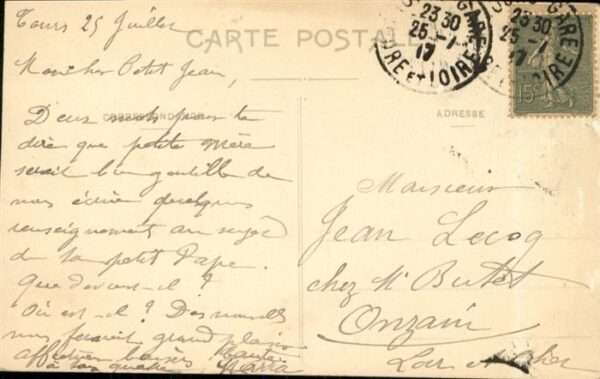 Tours 25 Juillet
CARTE POSTALE
Mon cher Petit Jean,
CORRESPONDANCE
Deux mots pour te
dire que petite Mère
serait bien gentille de
nous écrire quelques
renseignements au sujet
de ton petit Papa.
Que devient-il ?
Où est-il ? Des nouvelles
nous feraient grand plaisir
affectueux baisers
à tous quatre
23 30
25 - 7
17
GARE
INDRE ET LOIRE
23 30
25 - 7
17
GARE
ET LOIRE
15c
ADRESSE
Monsieur
Jean Lecoq
chez Mr Butet
Onzain
Loir et Cher